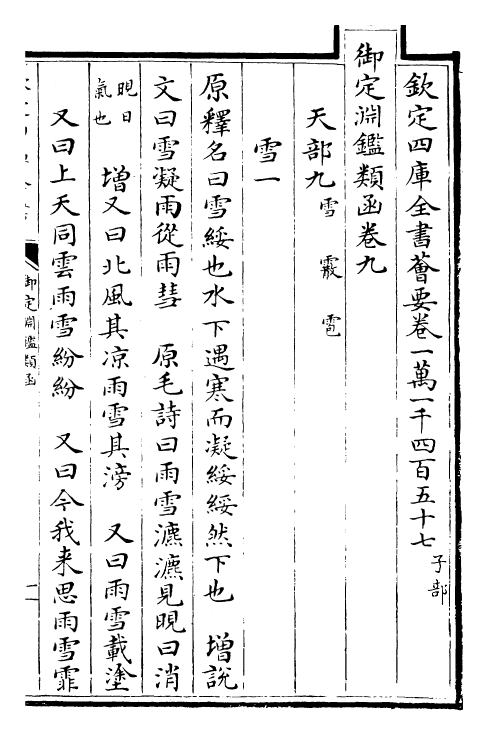 欽定四庫全書薈要卷一萬一千四百五十七 子部
御定淵鑑類函卷九
天部九 雪 霰 雹
雪一
原釋名曰雪綏也水下遇寒而凝綏綏然下也 增說
文曰雪凝雨從雨彗 原毛詩曰雨雪瀌瀌見晛曰消
晛日
氣也
增又曰北風其凉雨雪其滂 又曰雨雪載塗
又曰上天同雲雨雪紛紛 又曰今我来思雨雪霏
御定淵鑑類函
一